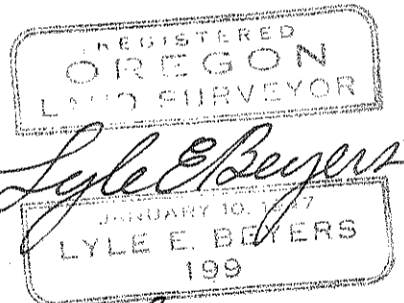 REGISTERED
OREGON
LAND SURVEYOR
Lyle E Beyers
JANUARY 10, 1947
LYLE E. BEYERS
199